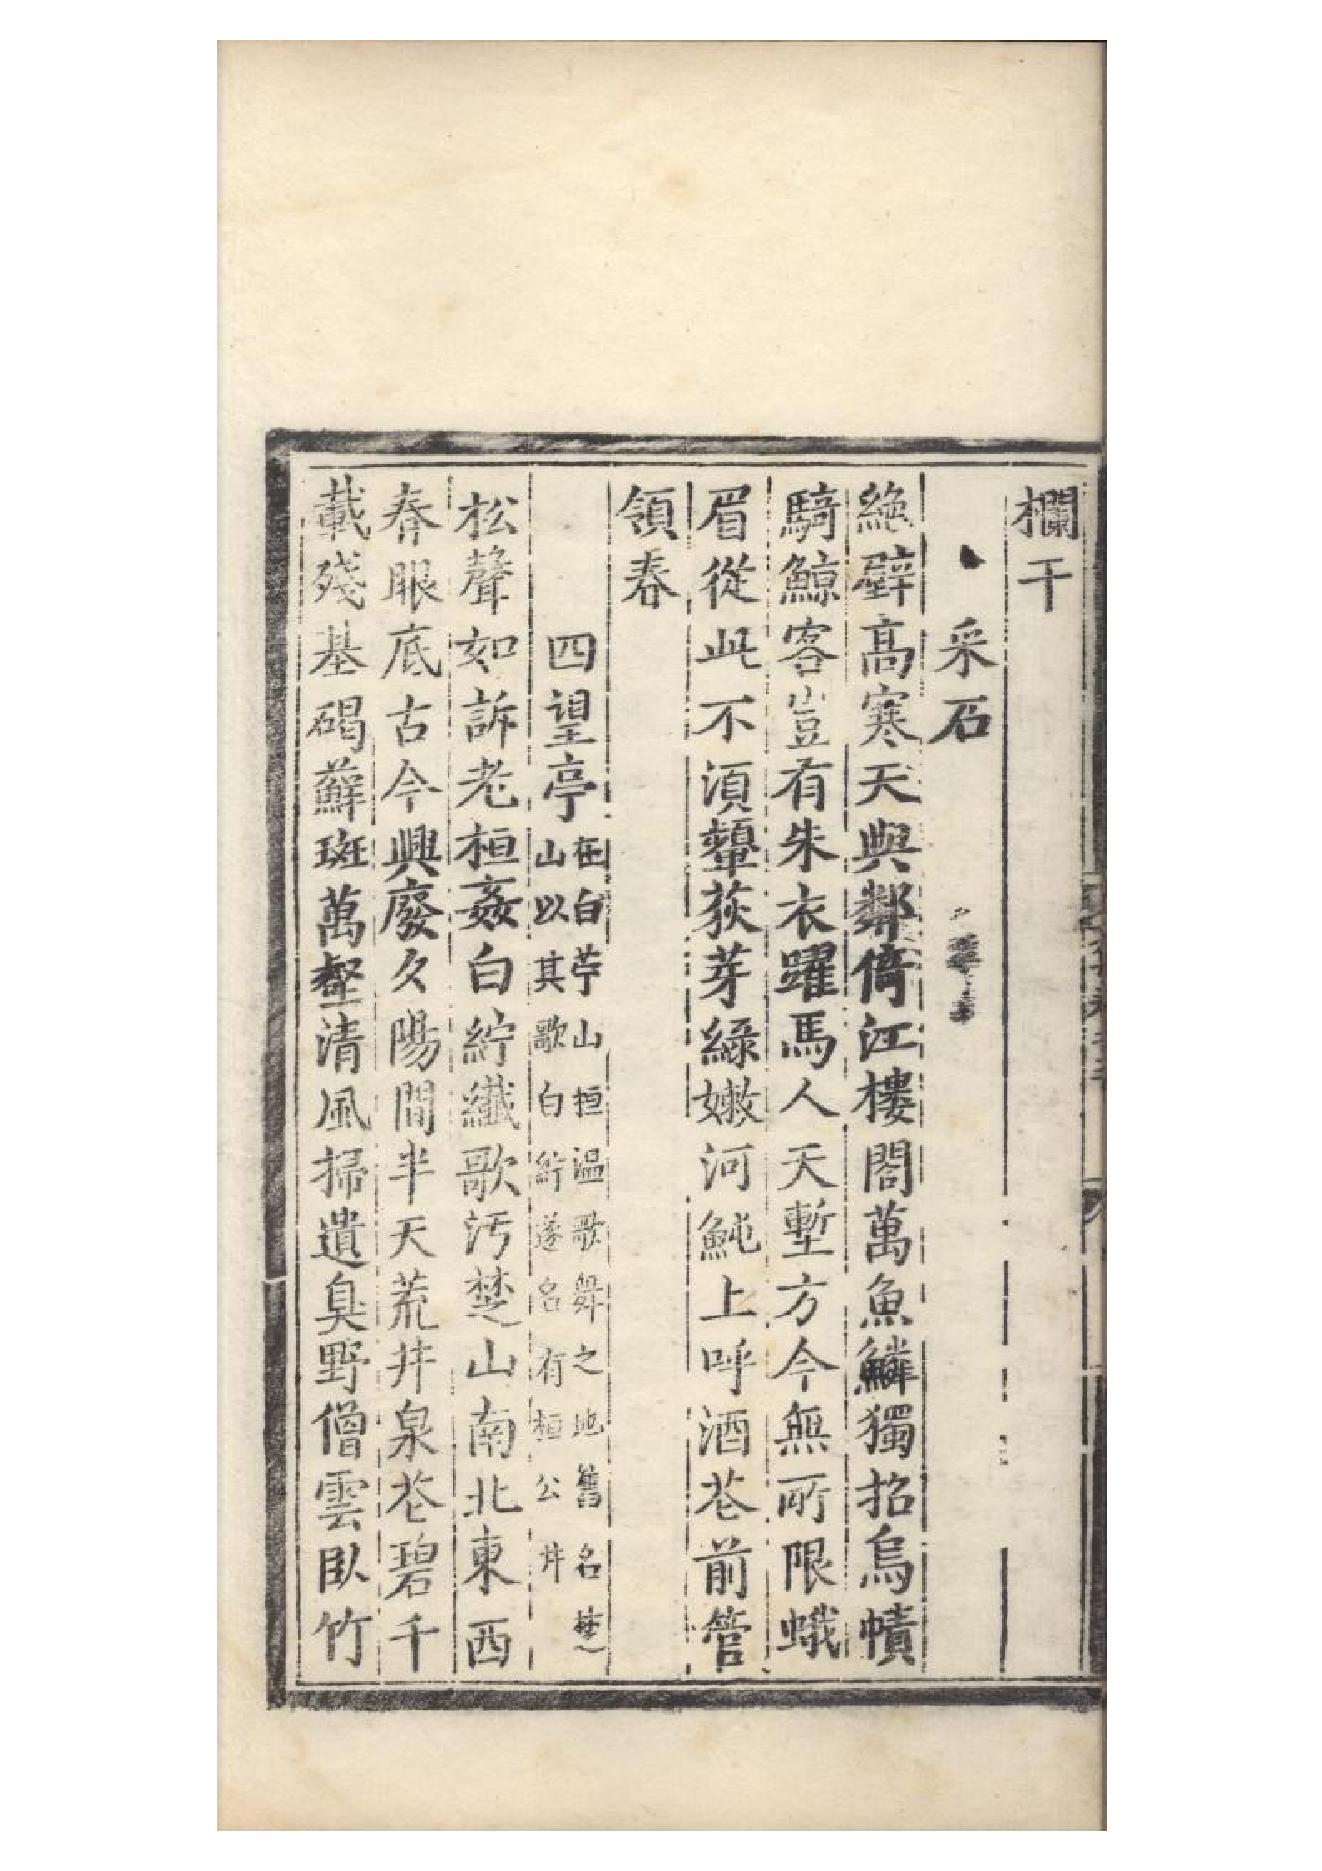 欄干
采石
絶壁髙寒天與鄰倚江樓閣萬魚鱗獨招烏幘
騎鯨客豈有朱衣躍馬人天塹方今無所限蛾
眉從此不湏顰荻芽綠嫩河魨上呼酒花前管
領春
四望亭在白苧山桓温歌舞之地舊名楚
山以其歌白紵遂名有桓公井
松聲如訴老桓姦白紵纖歌汚楚山南北東西
春眼底古今興廢夂陽間半天荒井泉花碧千
載殘基碣蘚斑萬壑清風掃遺臭野僧雲臥竹